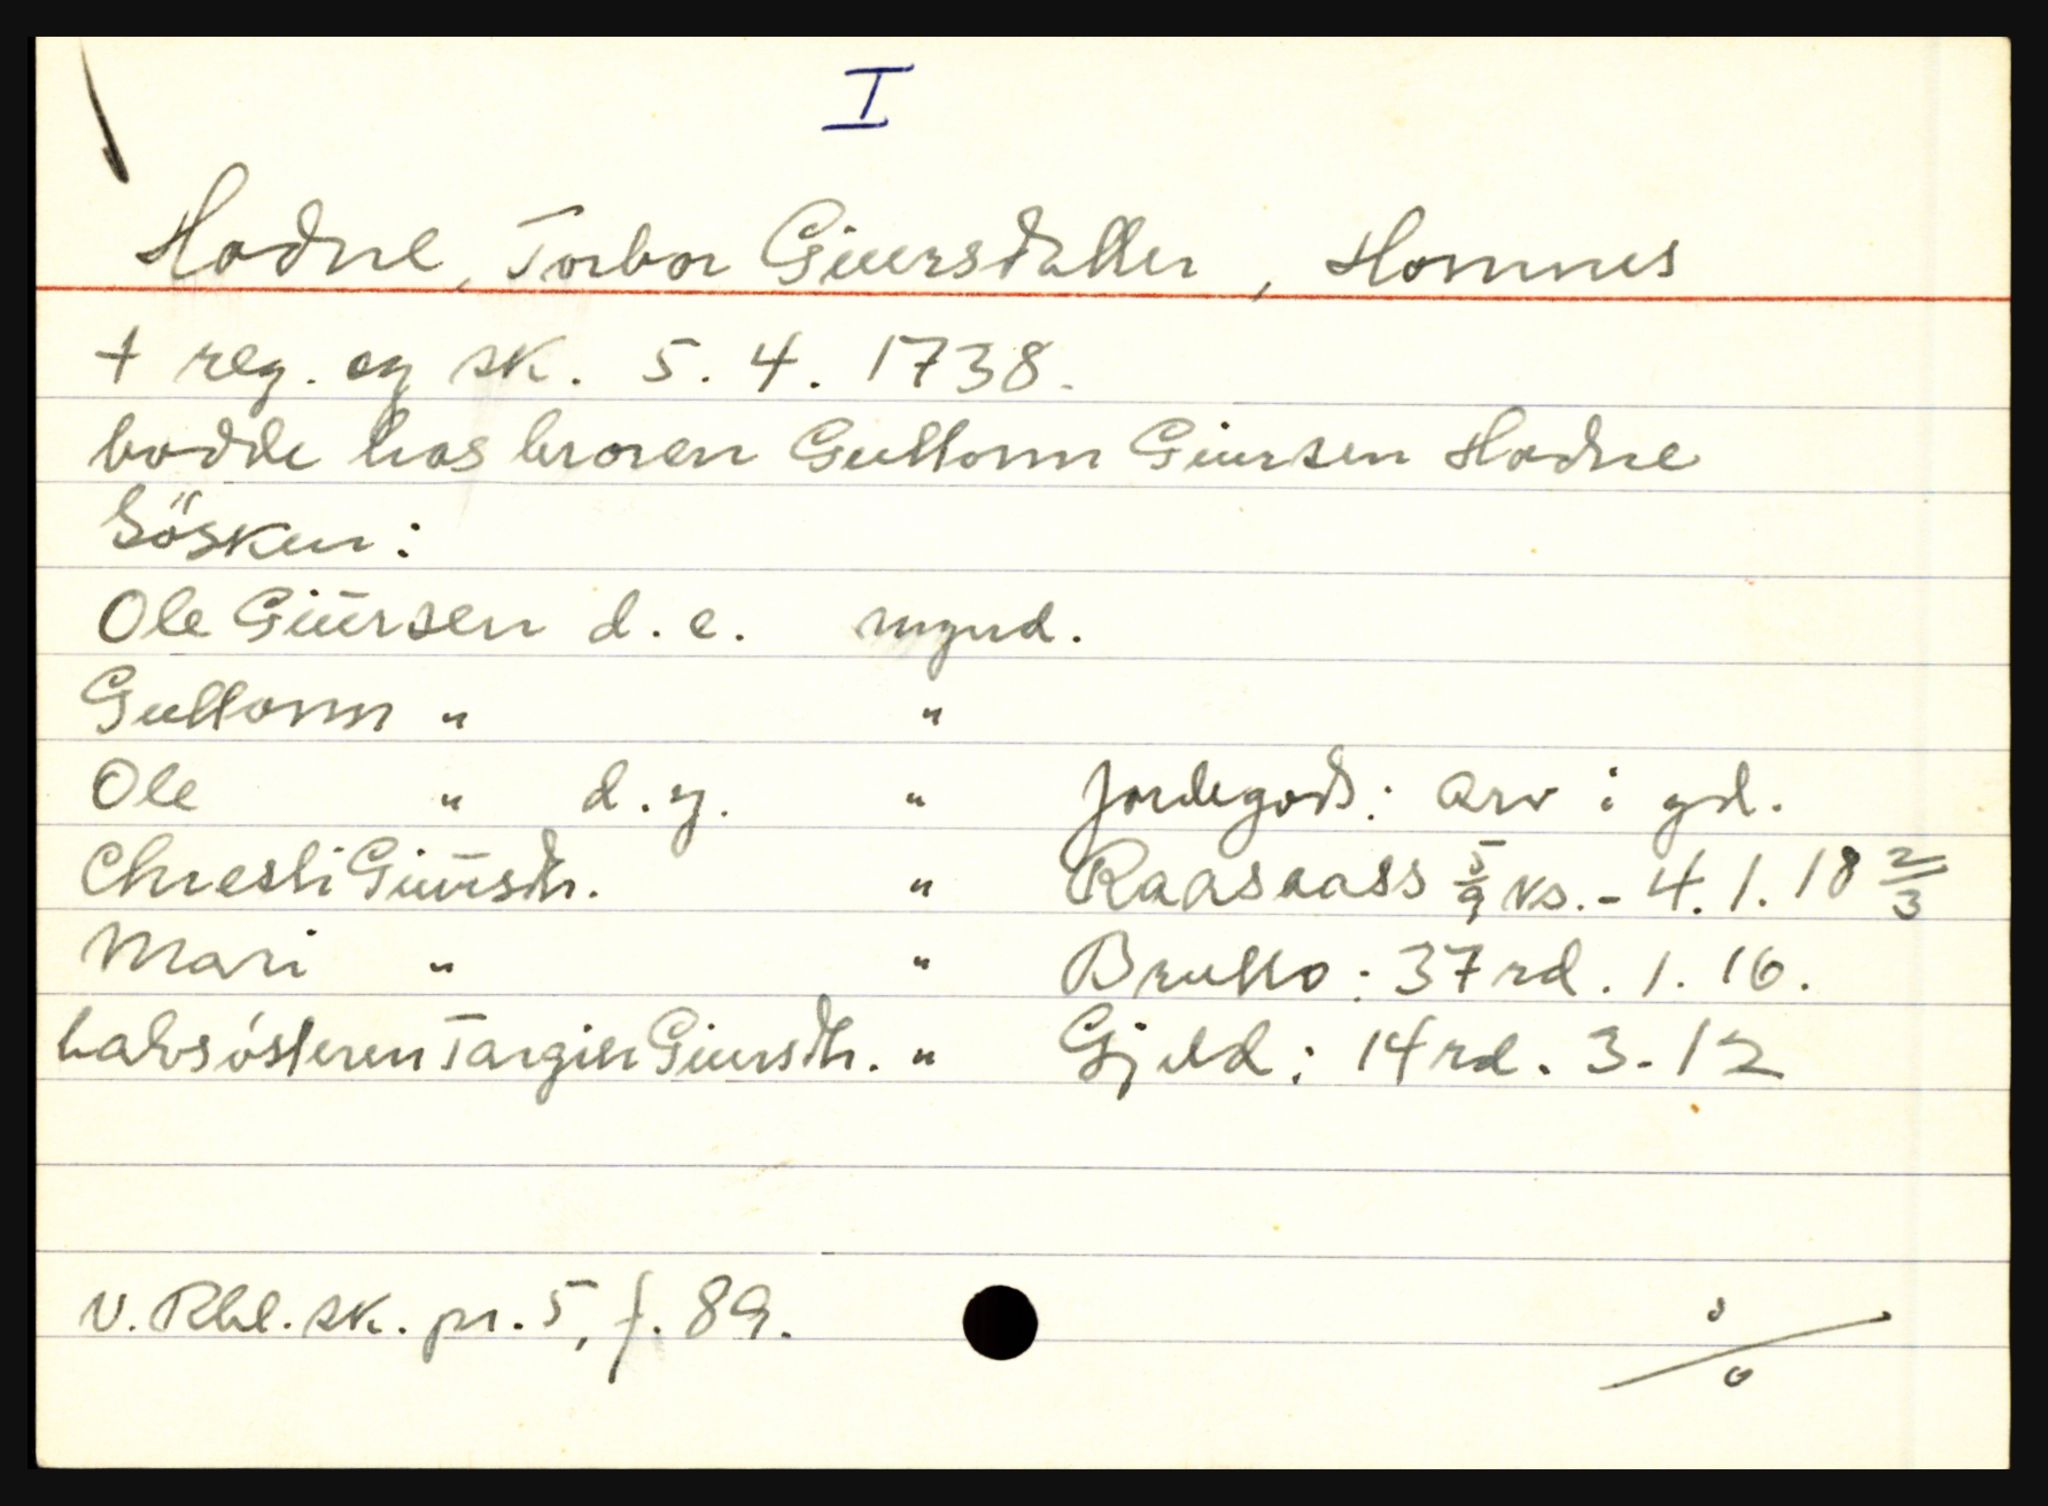 I
Hodne, Torbor Giuersdatter, Homnes
† reg. og sk. 5. 4. 1738.
bodde hos broren Guttorm Giursen Hodne
Sösken:
Ole Giūrsen d. e. mynd.
Guttorm " "
Ole " d. y. " Jordegods: Arv i gd.
Chresti Giūrsdtr. " Raasaass 5/9 ks. - 4. 1. 18 2/3
Mari " " Brutto: 37 rd. 1. 16.
halvsösteren Targier Giursdtr. " Gjeld: 14 rd. 3 - 12
V. Rbl. sk. pr. 5, f. 89.
%